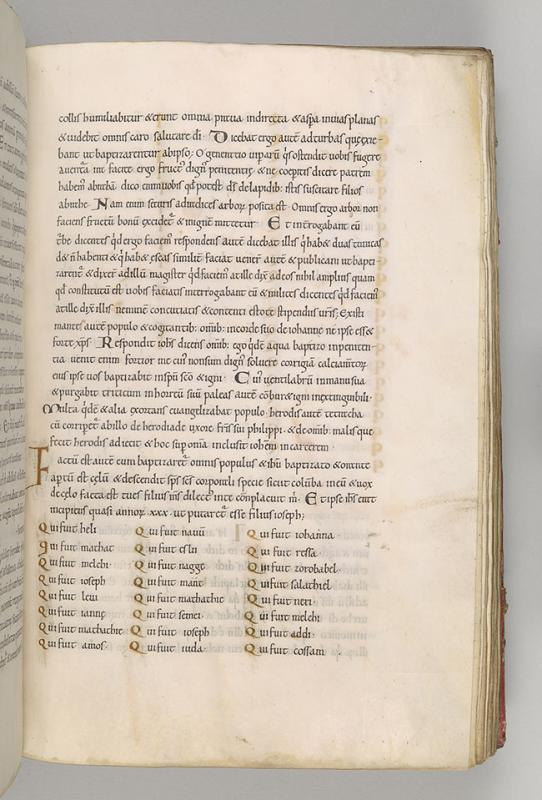 collis humiliabitur & erunt omnia praua indirecta & aspa inuias planas
& uidebit omnis caro salutare di Dicebat ergo aute ad turbas que exie
bant ut baptizarentur ab ipso; O genimina uiparu qs ostendit uobis fugere
a uentura ira facite ergo fruct dign penitentie & ne coeperitis dicere patrem
habem abraha dico enim uobis qd potest ds de lapidib istis suscitare filios
abrahe Nam enim securis ad radices arbor posita est Omnis ergo arbor non
faciens fructu bonu excidet & in igne mittetur Et interrogabant eu
tbe dicentes qd ergo faciem respondens aute dicebat illis q hab& duas tunicas
d& n habenti & q hab& escas similit faciat uener aute & publicani ut bapti
zarent & dixer ad illu magister qd faciem at ille dix ad eos nihil amplius quam
qd constitutu est uobis faciatis interrogabant eu & milites dicentes qd faciem
at ille dix illis nemine concutiatis & contenti estote stipendiis uris; Existi
mantes aute populo & cogitantib omib in corde suo de iohanne ne ipse ess&
forte xps Respondit iohs dicens omib ego qde aqua baptizo in peniten
tia uenit enim fortior me cui non sum dign soluere corrigia calciamtor
eius ipse uos baptizabit in spu sco & igni Cui uentilabru in manu sua
& purgabit triticum in horreu suu paleas aute cobur& igni inextinguibili
Multa qde & alia exortans euangelizabat populo herodis aute tetrarcha
cu corripet ab illo de herodiade uxore fris sui philippi & de omib malis que
fecit herodis adiecit & hoc supr omia inclusit iohem in carcerem
Factu est aute cum baptizaret omnis populus & ihu baptizato & orante
aptu est celu & descendit sps scs corporali specie sicut coluba in eu & uox
de celo facta est tu es filius ms dilect in te complacuit m Et ipse ihs erat
incipiens quasi annor xxx ut putaret esse filius ioseph;
Qui fuit heli Qui fuit nauu Qui fuit iohanna
Qui fuit mathat Qui fuit esli Qui fuit ressa
Qui fuit melchi Qui fuit nagge Qui fuit zorobabel
Qui fuit ioseph Qui fuit maat Qui fuit salathiel
Qui fuit leui Qui fuit mathathie Qui fuit neri
Qui fuit ianne Qui fuit semei Qui fuit melchi
Qui fuit mathathie Qui fuit ioseph Qui fuit addi
Qui fuit amos Qui fuit iuda Qui fuit cossam